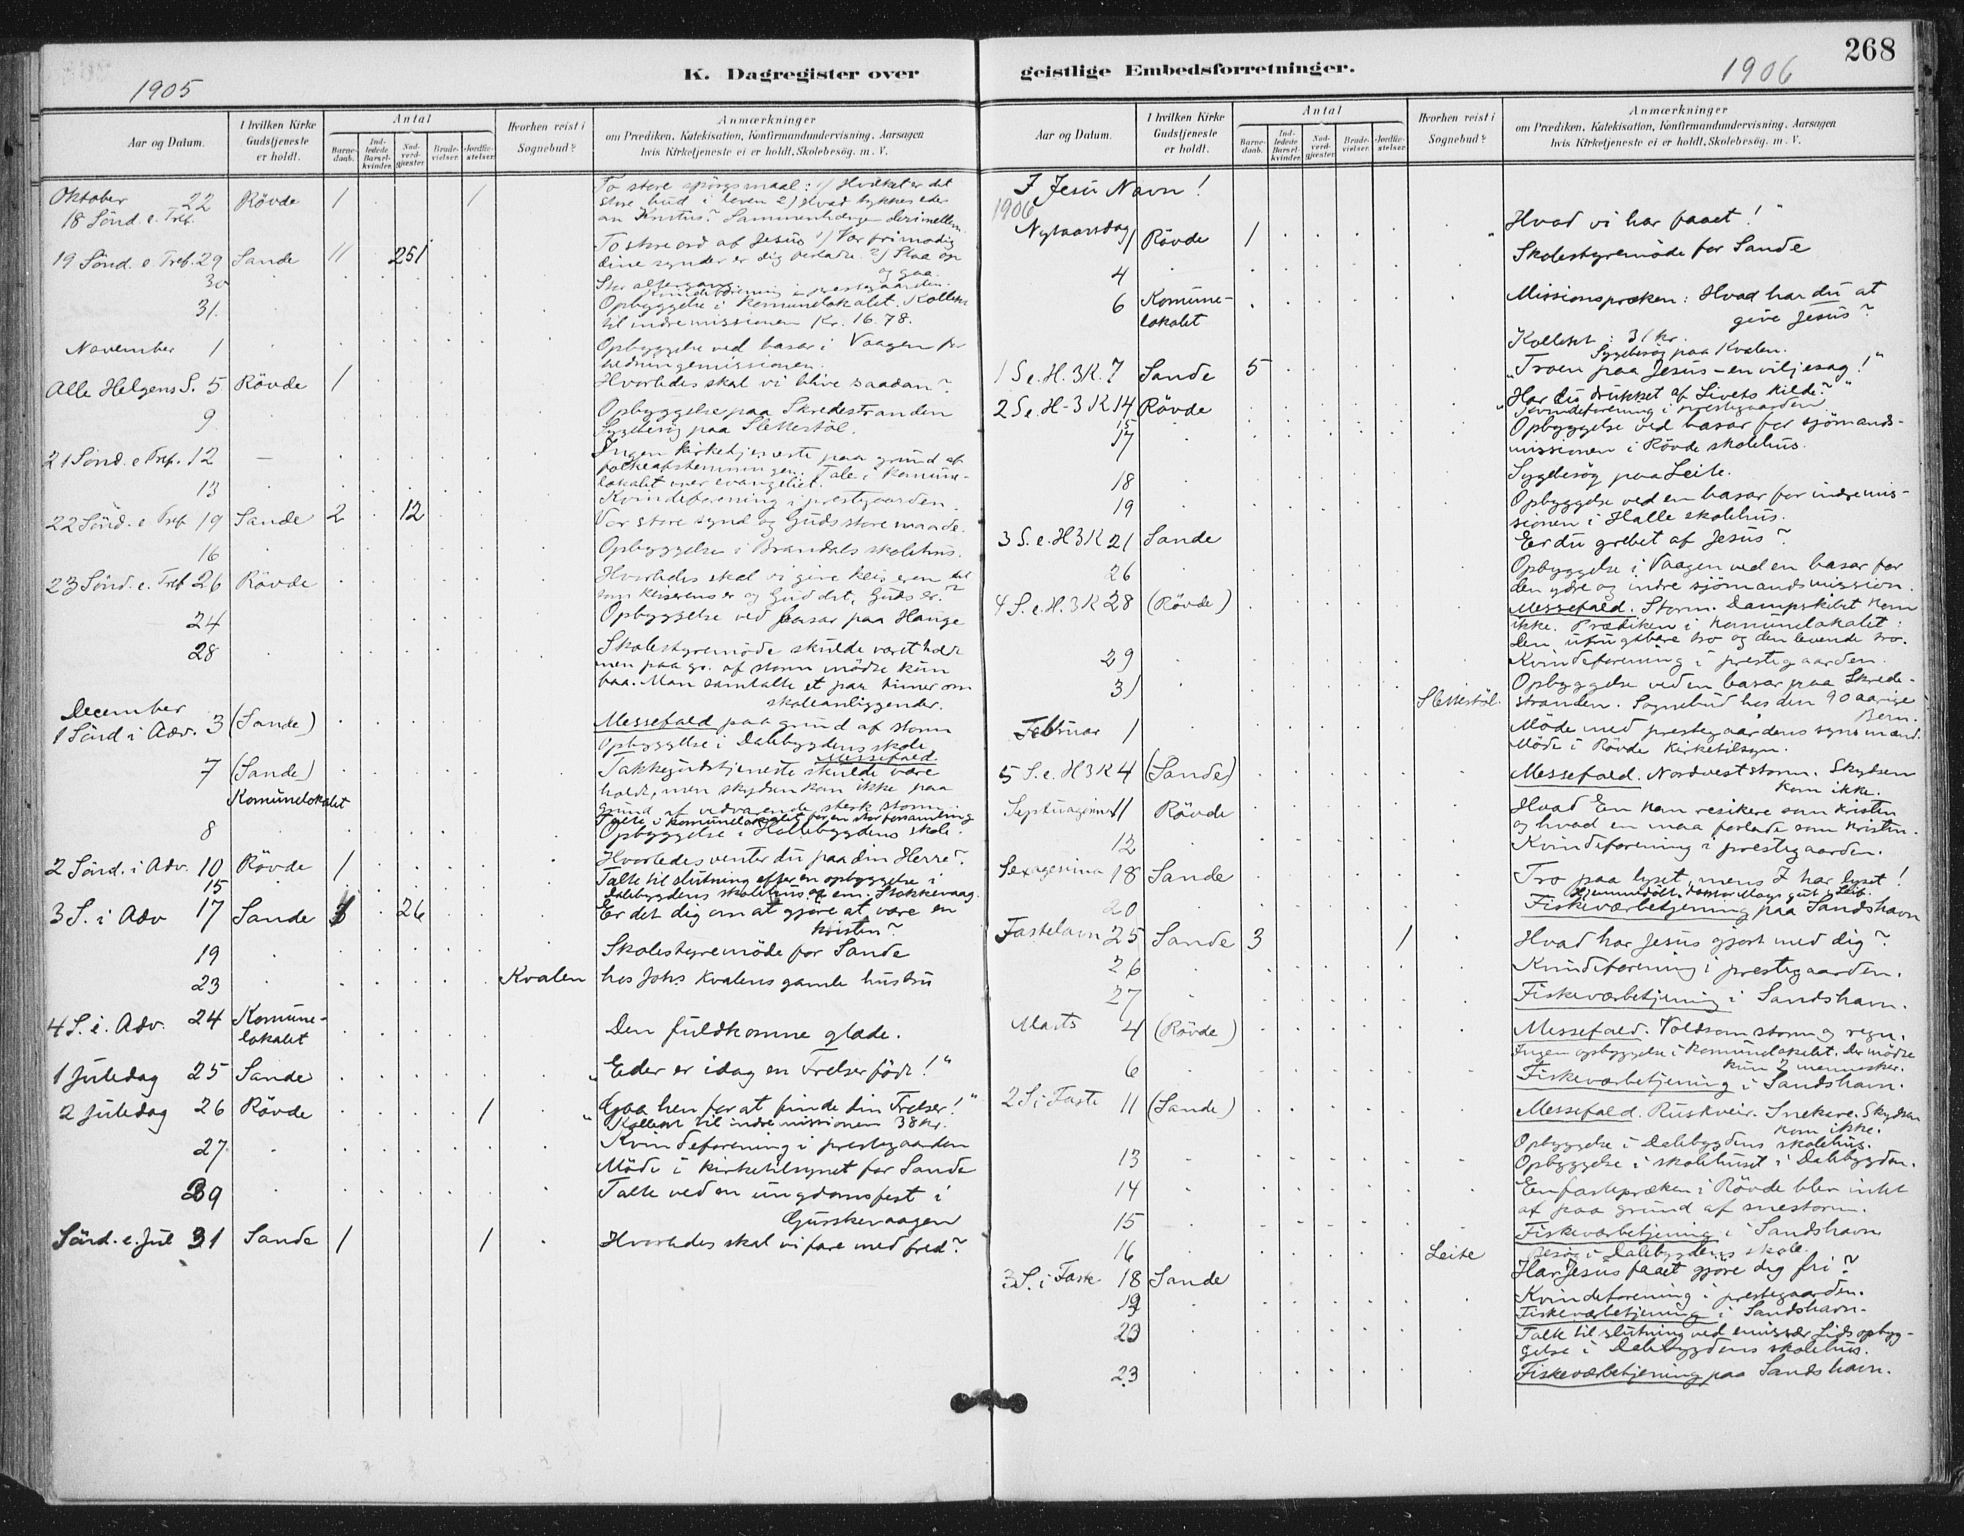 268
1905
K. Dagregister over
Aar og Datum.
I hvilken Kirke Gudstjeneste er holdt.
Antal
Barnedaab.
Indledede Barselkvinder.
Nadverdgjester.
Brudevielser.
Jordfæstelser.
Hvorhen reist i Sognebud?
Anmærkninger
om Prædiken, Katekisation, Konfirmandundervisning, Aarsagen
hvis Kirketjeneste ei er holdt, Skolebesøg. m. V.
Oktober 22 Rövde 1 1 To store spörgsmaal: 1) Hvilket er det
18 Sönd e. Tref. store bud i loven 2) Hvad tykkes eder
om Kristus? Sammenhengen derimellem.
19 Sönd. e. Tref. 29 Sande 11 251 To store ord af Jesus 1) Vær frimodig
dine synder er dig forladte. 2) Staa op
og gaa.
Stor altergang.
30 Kvindeforening i prestegaarden.
31. Opbyggelse i Komunelokalet. Kollekt
til indremissionen Kr. 16.78.
November 1 Opbyggelse ved basar i Vaagen for
hedningemissionen.
Alle Helgens S. 5 Rövde 1 Hvorledes skal vi blive saadan?
9 Opbyggelse paa Skredestranden
Sygebesög paa Slettestöl.
21 Sönd. e Tref. 12 — Ingen kirketjeneste paa grund af
folkeafstemningen. Tale i Komune-
lokalet over evangeliet.
13 Kvindeforening i prestegaarden.
22 Sönd. e Tref 19 Sande 2 12 Vor store synd og Guds store naade.
16 Opbyggelse i Brandals skolehus.
23 Sönd. e. Tref 26 Rövde Hvorledes skal vi give keiseren det
som keiserens er og Gud det, Guds er?
24 Opbyggelse ved basar paa Hauge
28 Skolestyremöde skulde været holdt
men paa gr. af storm mödte kun
to. Man samtalte et par timer om
skoleanliggender.
December
1 Sönd i Adv. 3 (Sande) Messefald paa grund af storm
Opbyggelse i Dalebygdens skole
7 (Sande) Messefald.
Takkegudstjeneste skulde være
holdt, men skydsen kom ikke paa
Komunelokalet grund af vedvarende sterk storm.
Tale i Komunelokalet for en stor forsamling
8 Opbyggelse i Hallebygdens skole.
2 Sönd. i Adv. 10 Rövde 1 Hvorledes venter du paa din Herre?
15 Talte til slutning efter en opbyggelse i
Dalebygdens skolehus af em. Stokkevaag.
3 S. i Adv 17 Sande 26 Er det dig om at gjöre at være en
kristen?
19 Skolestyremöde for Sande
23 Kvalen hos Johs Kvalens gamle hustru
4 S. i. Adv. 24 Komune-
lokalet Den fuldkomne glæde.
1 Juledag 25 Sande „Eder er idag en Frelser född!"
2 Juledag 26 Rövde 1 „Gaa hen for at finde din Frelser!"
Kollekt til indremissionen 38 kr.
27 Kvindeforening i prestegaarden
Möde i kirketilsynet for Sande
29 Talte ved en ungdomsfest i
Gurskevaagen
Sönd. e. Jul 31 Sande 1 1 Hvorledes skal vi fare med fred?
geistlige Embedsforretninger.
1906
Aar og Datum.
I hvilken Kirke Gudstjeneste er holdt.
Antal
Barnedaab.
Indledede Barselkvinder.
Nadverdgjester.
Brudevielser.
Jordfæstelser.
Hvorhen reist i Sognebud?
Anmærkninger
om Prædiken, Katekisation, Konfirmandundervisning, Aarsagen
hvis Kirketjeneste ei er holdt, Skolebesøg. m. V.
I Jesu Navn!
1906
Nytaarsdag 1 Rövde 1 „Hvad vi har faaet!"
4 Skolestyremöde for Sande
6 Komune-
lokalet Missionspræken: Hvad har du at
give Jesus?
Kollekt: 31 kr.
Sygebesög paa Kvalen.
1 S e. H. 3 K. 7 Sande 5 „Troen paa Jesus – en viljesag!"
2 S e. H-3 K 14 Rövde „Har du drukket af Livets kilde?"
15 Kvindeforening i prestegaarden
17 Opbyggelse ved basar for sjömands-
missionen i Rövde skolehus.
18 Sygebesög paa Leite.
19 Opbyggelse ved en basar for indremis-
sionen i Halle skolehus.
3 S. e. H 3 K 21 Sande Er du grebet af Jesus?
26 Opbyggelse i Vaagen ved en basar for
den ydre og indre sjömandsmission.
4 S. e. H. 3 K 28 (Rövde) Messefald. Storm. Dampskibet kom
ikke. Prædiken i Komunelokalet:
Den ufrugtbare tro og den levende tro.
29 Kvindeforening i prestegaarden.
31 Slettestöl. Opbyggelse ved en basar paa Skrede-
stranden. Sognebud hos den 90 aarige
Bern.
Februar 1 Möde med prestegaardens synsmænd.
Möde i Rövde kirketilsyn.
5 S. e. H 3 K 4 (Sande) Messefald. Nordveststorm. Skydsen
kom ikke.
Septuagesima 11 Rövde Hvad En kan resikere som kristen
og hvad en maa forlade som kristen.
12 Kvindeforening i prestegaarden.
Sexagesima 18 Sande Tro paa lyset, mens I har lyset!
20 Fiskeværbetjening paa Sandshavn
Fastelavn 25 Sande 3 1 Hvad har Jesus gjort med dig?
26 Kvindeforening i prestegaarden.
27 Fiskeværbetjening i Sandshavn.
Marts 4 (Rövde) Messefald. Voldsom storm og regn.
Ingen opbyggelse i Komunelokalet. Der mödte
kun 2 mennesker.
6 Fiskeværbetjening i Sandshavn.
2 S i Faste 11 (Sande) Messefald. Ruskveir. Snekave. Skydsen
kom ikke.
Opbyggelse i Dalebygdens skolehus.
13 Opbyggelse i skolehuset i Dalebygden.
14 En fastepræken i Rövde blev intet
af paa grund af snestorm.
15 Fiskeværbetjening i Sandshavn
16 Leite Besög i Dalebygdens skole.
3 S. i Faste 18 Sande Har Jesus faaet gjöre dig fri?
19 Kvindeforening i prestegaarden.
Fiskeværbetjening i Sandshavn.
Talte til slutning ved emissær Lids opbyg-
gelse i Dalebygdens skolehus.
23 Fiskeværbetjening paa Sandshavn.